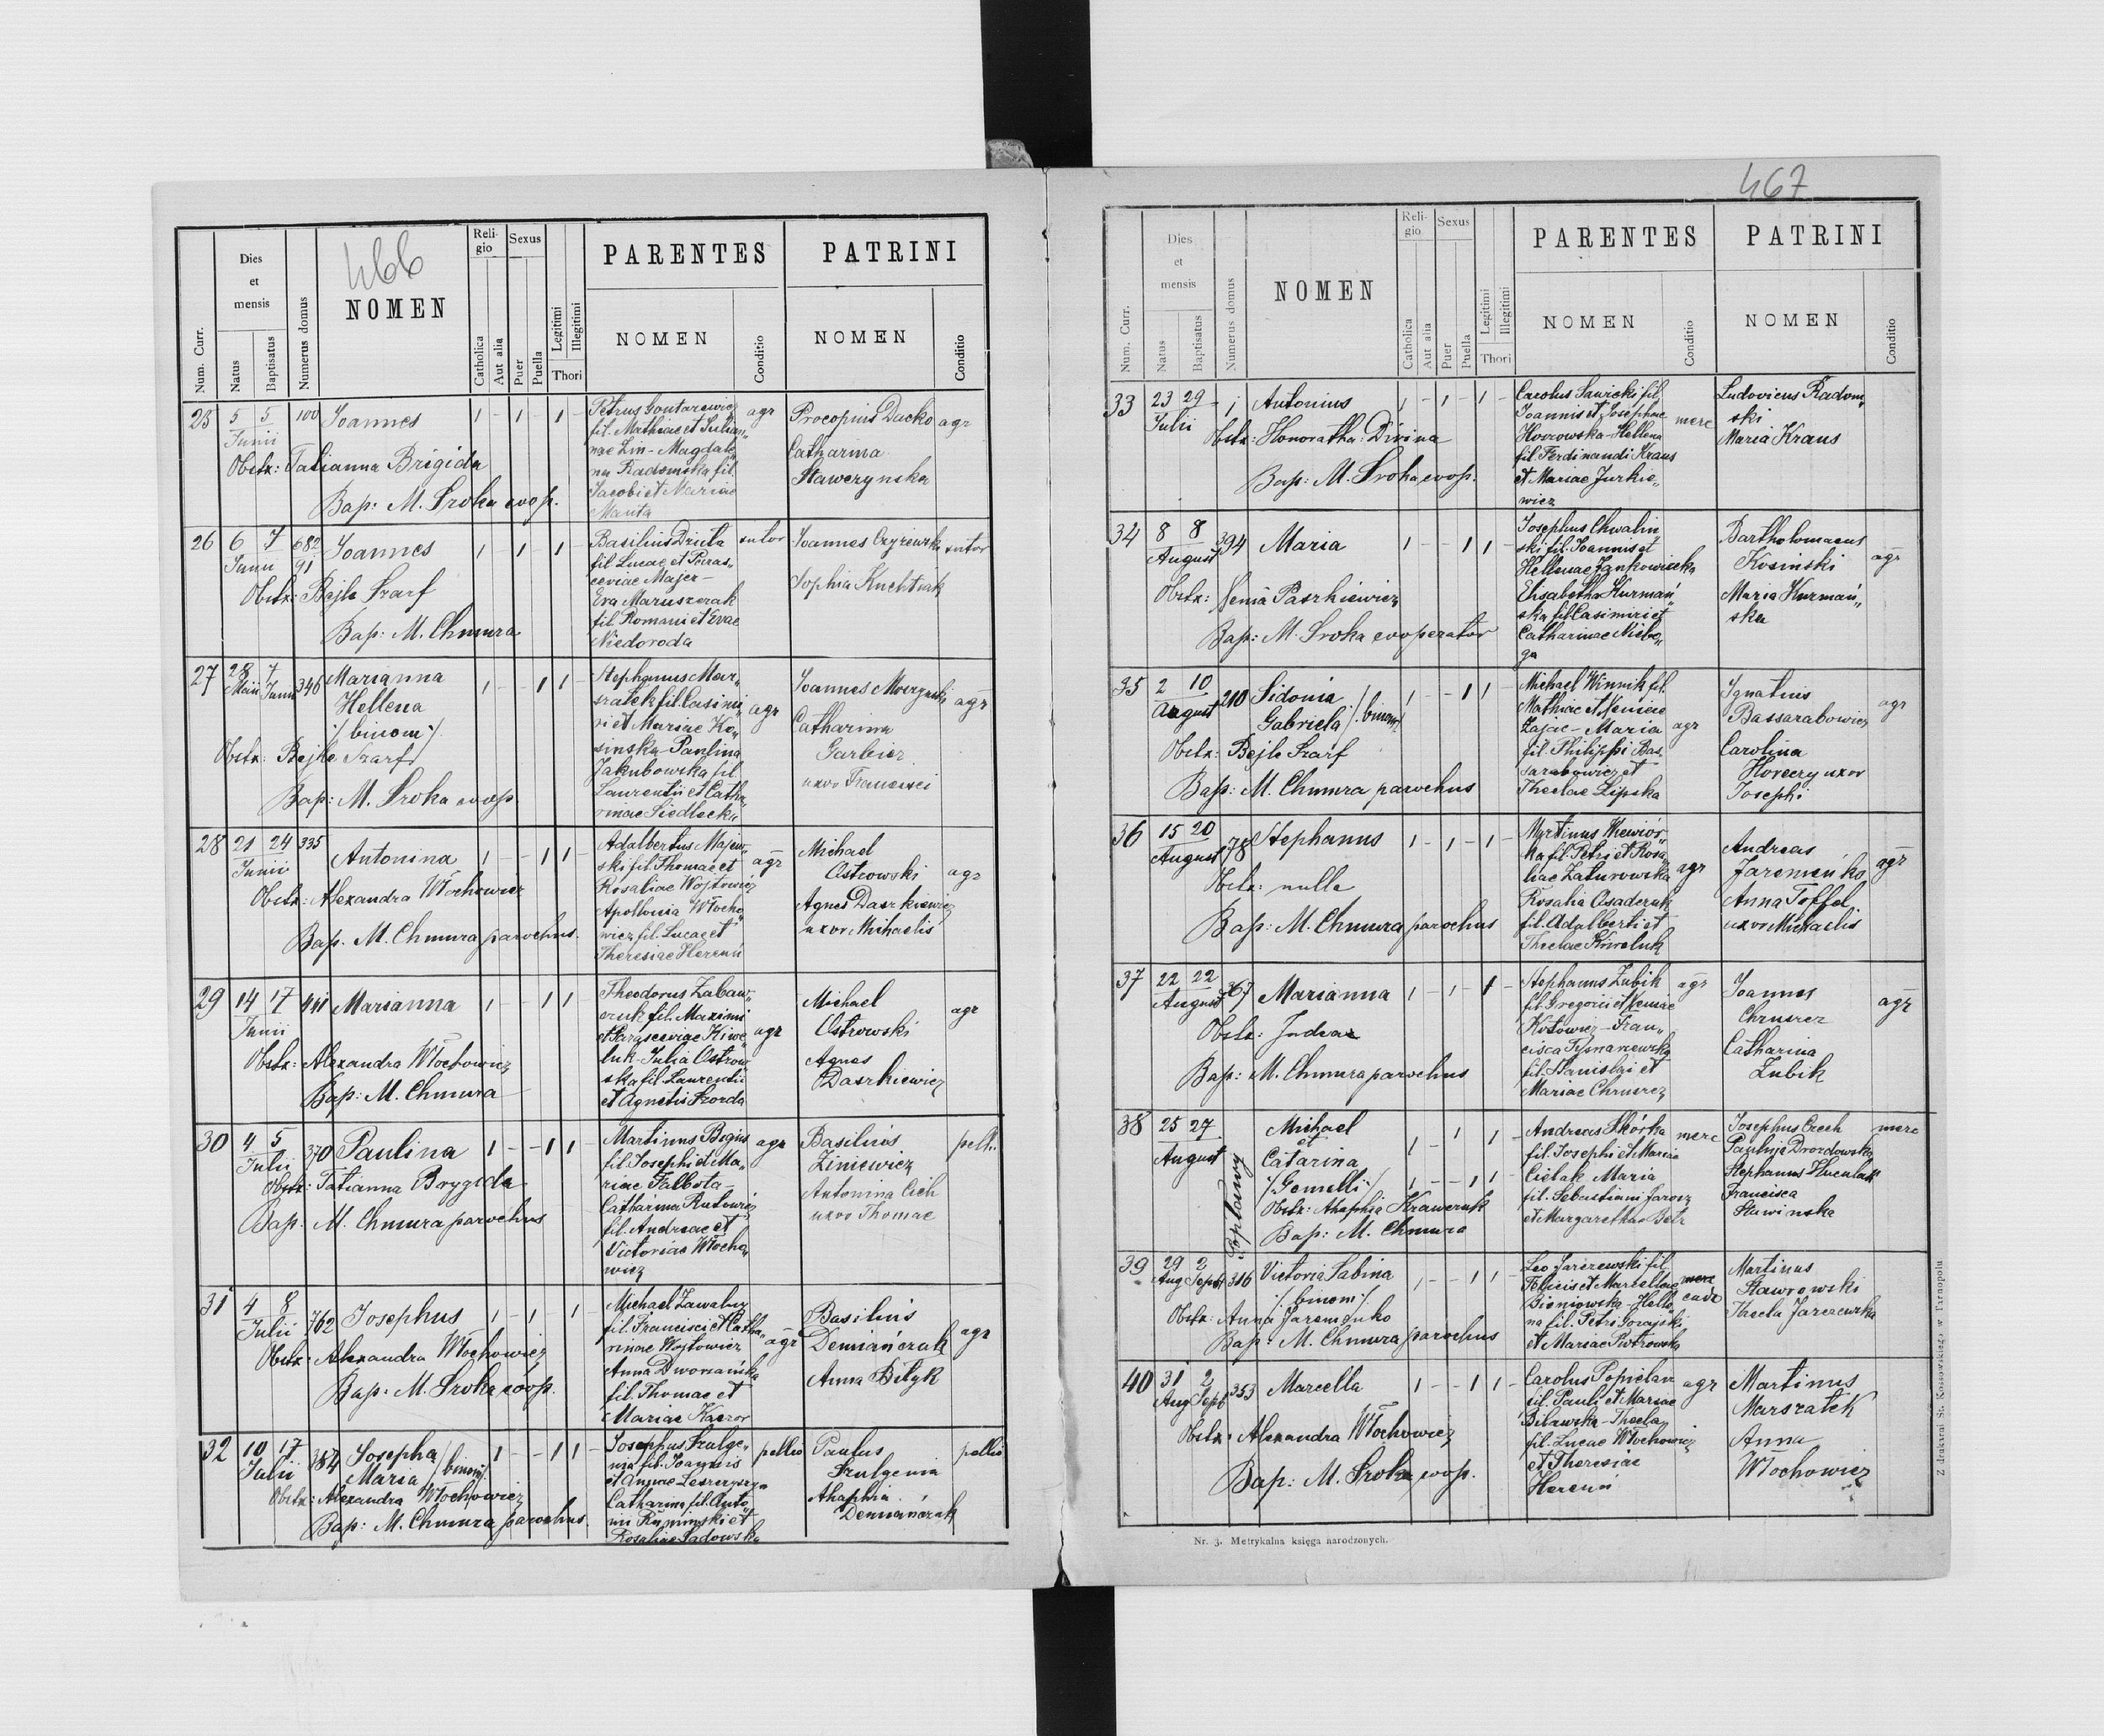 466
Num. Curr.
Dies et mensis
Natus
Baptisatus
Numerus domus
NOMEN
Religio
Catholica
Aut alia
Sexus
Puer
Puella
Legitimi
Illegitimi
Thori
PARENTES
NOMEN
Conditio
PATRINI
NOMEN
Conditio
25 5 5 Junii 100 Joannes 1 - 1 - 1 -
Obstx: Tatianna Brigida
Bap: M. Sroka coop.
Petrus Gontarewicz agr
fil. Mathiae et Julian„
nae Zin - Magdale„
na Radomska fil.
Jacobi et Mariae
Manta
Procopius Dacko agr
Catharina
Stawczynska
26 6 7 Junii 682 91 Joannes 1 - 1 - 1 -
Obstx: Bejla Szarf
Bap: M. Chmura
Basilius Dziuta sutor
fil. Lucae et Paras„
ceviae Majer -
Eva Maruszczak
fil. Romani et Evae
Niedoroda
Joannes Czyzewski sutor
Sophia Kuchtiak
27 28 Maii 7 Junii 346 Marianna
Hellena
/: binom :/
1 - - 1 1 -
Obstx: Bejla Szarf
Bap: M. Sroka coop
Stephanus Mar„
szalek fil. Casimi„
ri et Mariae Ko„
sinska - Paulina
Jakubowska fil.
Laurentii et Catha„
rinae Siedlecka
agr
Joannes Mverynski agr
Catharina
Garbicz
uxor Francisci
28 21 24 Junii 335 Antonina 1 - - 1 1 -
Obstx: Alexandra Włochowicz
Bap. M. Chmura parochus.
Adalbertus Majew„
ski fil. Thomae et
Rosaliae Wojtowicz
Apollonia Włocho„
wicz fil. Lucae et
Theresiae Hereuń
agr
Michael
Ostrowski
Agnes Daszkiewicz
uxor Michaelis
agr
29 14 17 Junii 441 Marianna 1 - - 1 1 -
Obstx: Alexandra Włochowicz
Bap: M. Chmura
Theodorus Zabaw„
czuk fil. Maximi
et Parasceviae Kiwe„
luk - Julia Ostrow„
ska fil. Laurentii
et Agnetis Szorda
agr
Michael
Ostrowski
Agnes
Daszkiewicz
agr
30 4 5 Julii 370 Paulina 1 - - 1 1 -
Obstx: Tatianna Brygida
Bap: M. Chmura parochus
Martinus Bogus
fil. Josephi et Ma„
riae Falbota -
Catharina Rutowicz
fil. Andreae et
Victoriae Włocho„
wicz
agr
Basilius
Ziniewicz
Antonina Cich
uxor Thomae
pelli.
31 4 8 Julii 762 Josephus 1 - 1 - 1
Obstx: Alexandra Włochowicz
Bap: M. Sroka coop.
Michael Zawalny
fil. Francisci et Catha„
rinae Wojtowicz
Anna Dworiańska
fil. Thomae et
Mariae Kaczor
agr
Basilius
Demiańczuk
Anna Biłyk
agr
32 10 17 Julii 384 Josepha
Maria /: binom :/
1 - - 1 1 -
Obstx: Alexandra Włochowicz
Bap: M. Chmura parochus
Josephus Szulge„
nia fil. Joannis
et Annae Leszczyszyn
Catharina fil. Anto„
nii Rymimski et
Rosaliae Sadowska
pellio
Paulus
Szulgenia
Ahaphia
Demiańczuk
pellio
467
Num. Curr.
Dies et mensis
Natus
Baptisatus
Numerus domus
NOMEN
Religio
Catholica
Aut alia
Sexus
Puer
Puella
Legitimi
Illegitimi
Thori
PARENTES
NOMEN
Conditio
PATRINI
NOMEN
Conditio
33 23 29 Julii - 1 Antonius 1 - 1 - 1 -
Obstx: Honoratha Divina
Bap: M. Sroka coop.
Carolus Sawicki fil.
Joannis et Josephae
Horowska - Hellena
fil. Ferdinandi Kraus
et Mariae Jurkie„
wicz
merc
Ludovicus Radom„
ski
Maria Kraus
34 8 8 August 394 Maria 1 - - 1 1 -
Obstx: Xenia Paszkiewicz
Bap: M. Sroka cooperator
Josephus Chwalin„
ski fil. Joannis et
Hellenae Jankowiecka
Elisabetha Kurmań„
ska fil. Casimiri et
Catharinae Niebo„
ga
Bartholomaeus
Kosinski
Maria Kurmań„
ska
agr
35 2 10 August 210 Sidonia
Gabriela /: binom :/
1 - - 1 1 -
Obstx: Bejla Szarf
Bap: M. Chmura parochus
Michael Winnik fil.
Mathiae et Xeniae
Zajac - Maria
fil. Philippi Bas„
sarabowicz et
Theclae Lipska
agr
Ignatius
Bassarabowicz
Carolina
Horeczy uxor
Josephi
agr
36 15 20 August 78 Stephanus 1 - 1 - 1 -
Obstx: nulla
Bap: M. Chmura parochus
Martinus Wiewiór„
ka fil. Petri et Rosa„
liae Zaturowska
Rosalia Osadczuk
fil. Adalberti et
Theclae Kowaluk
agr
Andreas
Jaremeńko
Anna Toffel
uxor Michaelis
agr
37 22 22 August 367 Marianna 1 - 1 - 1 -
Obstx: Judea
Bap: M. Chmura parochus
Stephanus Zubik
fil. Gregorii et Xeniae
Kotowicz - Fran„
cisca Tymaniewska
fil. Stanislai et
Mariae Chruscz
agr
Joannes
Chruscz
Catharina
Zubik
agr
38 25 27 August Toplawy
Michael
et
Catarina
/: Gemelli :/
1 - 1 1 -
1 - - 1 1 -
Obstx: Ahaphia Krawczuk
Bap: M. Chmura
Andreas Skórka
fil. Josephi et Mariae
Cieslak Maria
fil. Sebastiani Jarosz
et Margarethae Betz
merc
Josephus Czech
Paulina Drozdowska
Stephanus Huculak
Francisca
Sławinska
merc
39 29 Aug 2 Septbr 316 Victoria Sabina
/: binom :/
1 - - 1 1 -
Obstx: Anna Jaremenko
Bap: M. Chmura parochus
Leo Jarczewski fil.
Felicis et Marcellae
Bieniowska - Helle„
na fil. Petri Sorajski
et Mariae Piotrowska
Martinus
Stawrowski
Thecla Jarczewska
40 31 Aug 2 Septb 353 Marcella 1 - - 1 1 -
Obstx: Alexandra Włochowicz
Bap: M. Sroka coop.
Carolus Popielarz
fil. Pauli et Mariae
Bilawska - Thecla
fil. Lucae Włochowicz
et Theresiae
Hereuń
agr
Martinus
Marszałek
Anna
Włochowicz
Nr. 3. Metrykalna księga narodzonych.
Z drukarni St. Kossowskiego w Tarnopolu